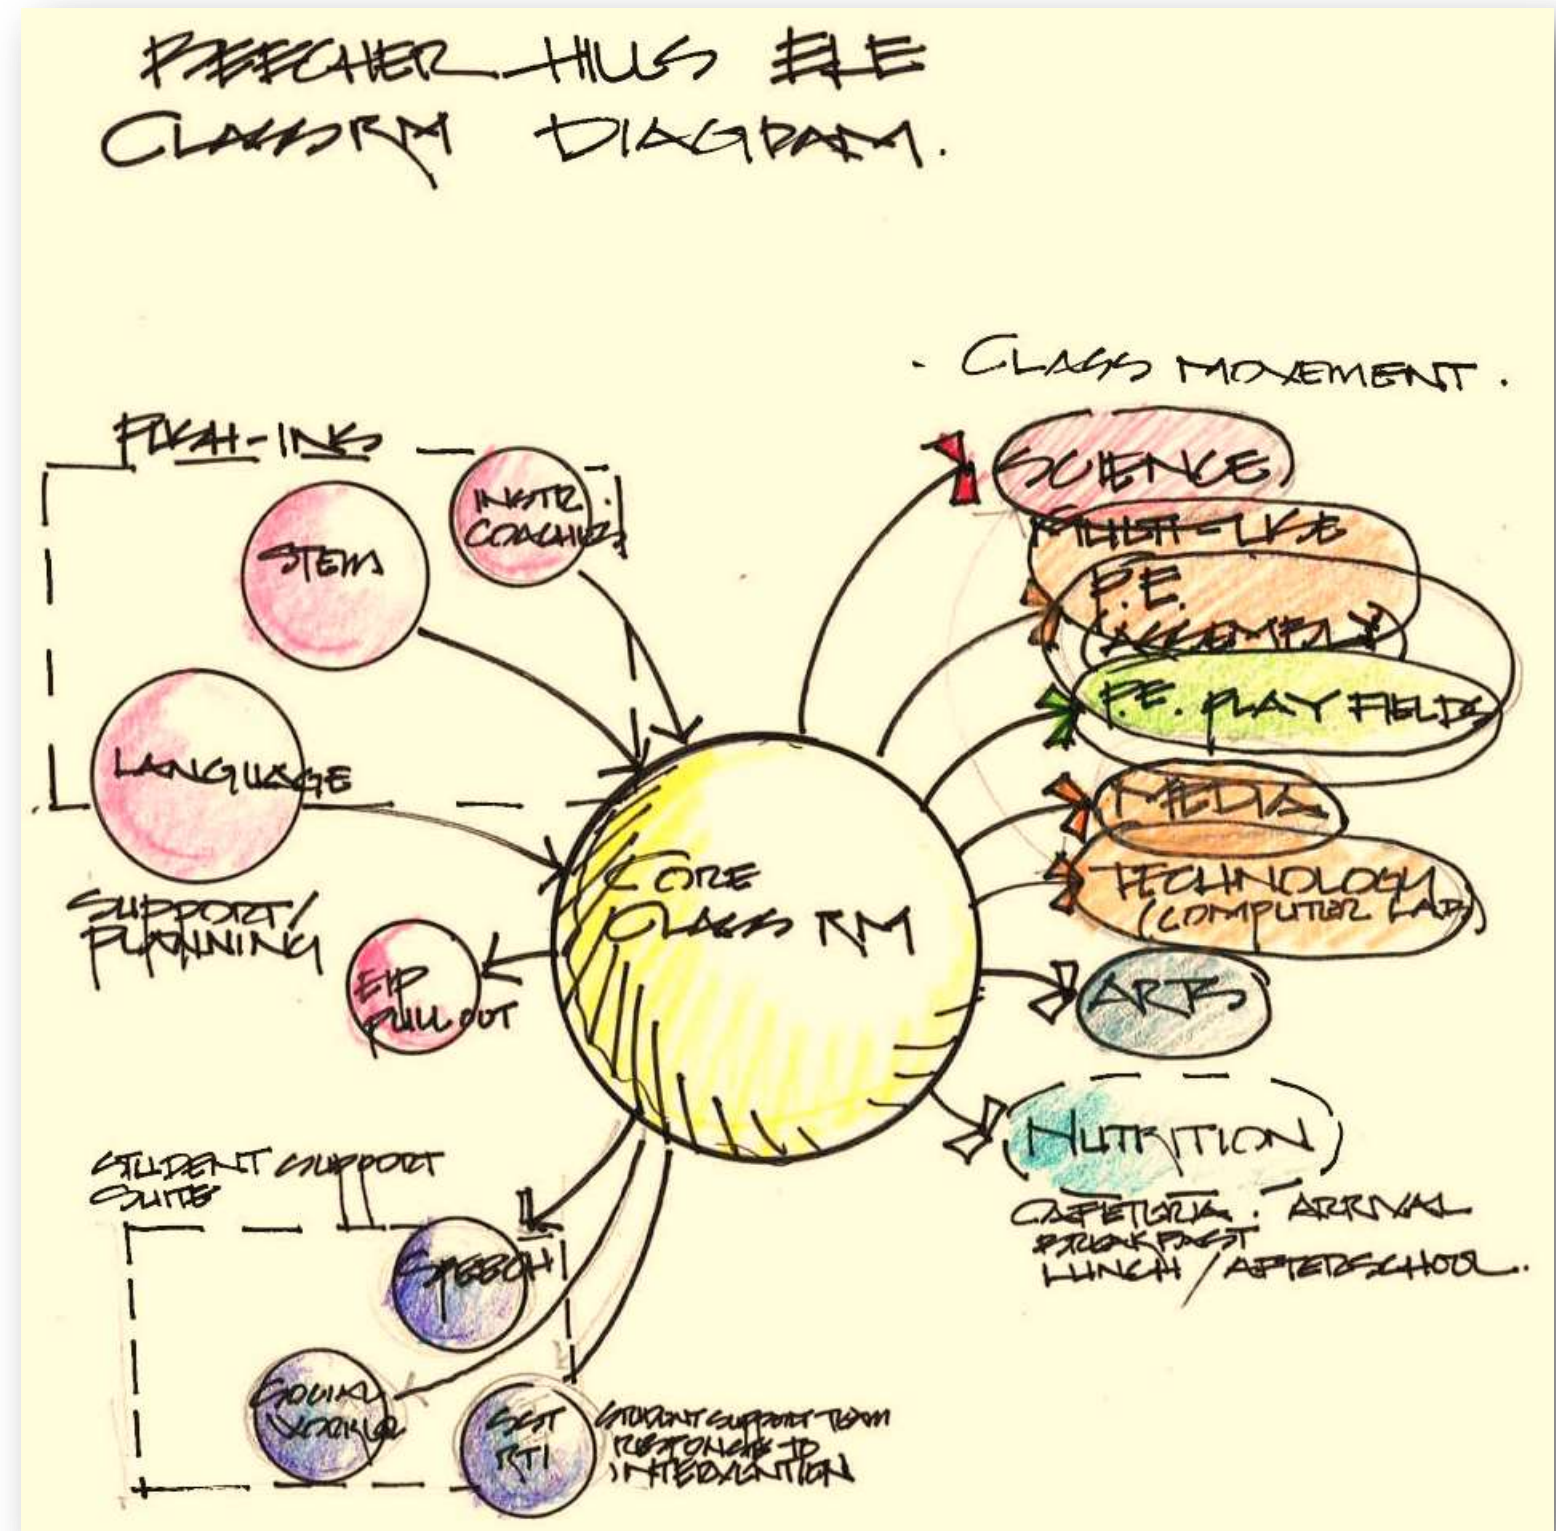 BEECHER HILLS ELE
CLASSRM DIAGRAM.
· CLASS MOVEMENT.
PUSH-INS
INSTR.
COACHES
STEM
LANGUAGE
SUPPORT/
PLANNING
EIP
PULL OUT
CORE
CLASS RM
SCIENCE
MULTI-USE
P.E.
ASSEMBLY
P.E. PLAY FIELDS
MEDIA
TECHNOLOGY
(COMPUTER LAB)
ARTS
NUTRITION
CAFETERIA. ARRIVAL
BREAKFAST
LUNCH / AFTERSCHOOL.
STUDENT SUPPORT
SUITE
SPEECH
SOCIAL
WORKER
SST
RTI
STUDENT SUPPORT TEAM
RESPONSE TO
INTERVENTION